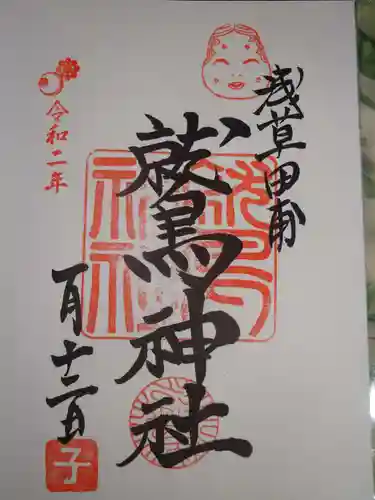 浅草田甫
鷲神社
令和二年
一月十二日
子